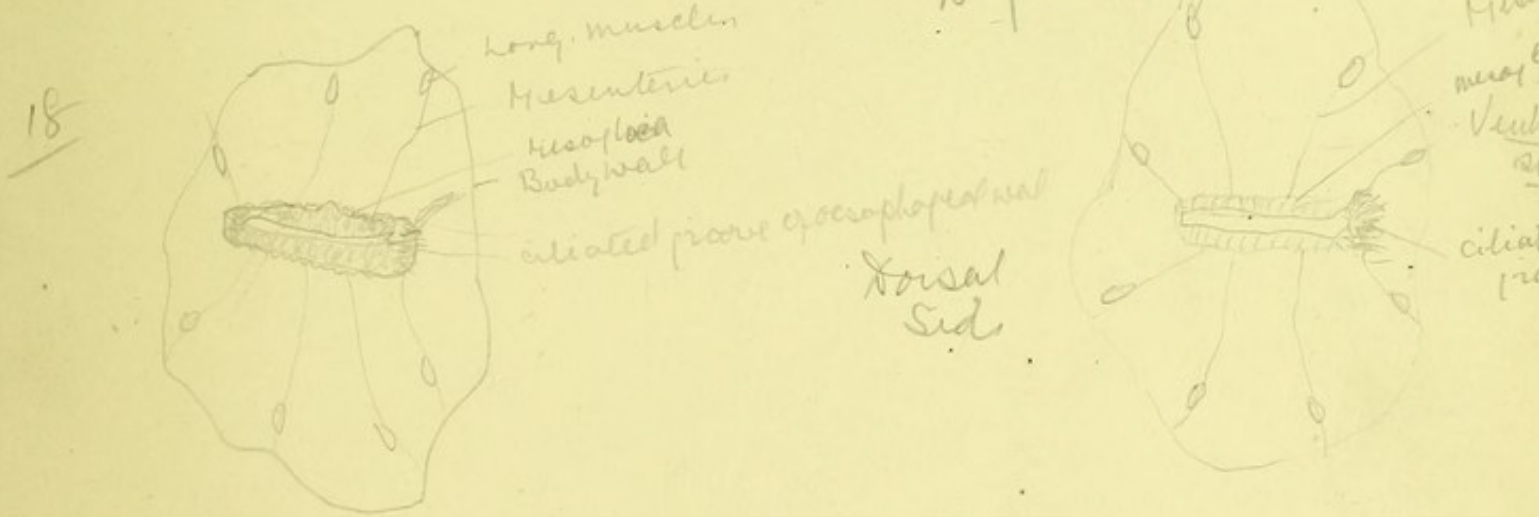 18
Long. muscles
Mesenteries
Mesogloea
Bodywall
ciliated groove of oesophageal wall
Dorsal
Side
ciliat